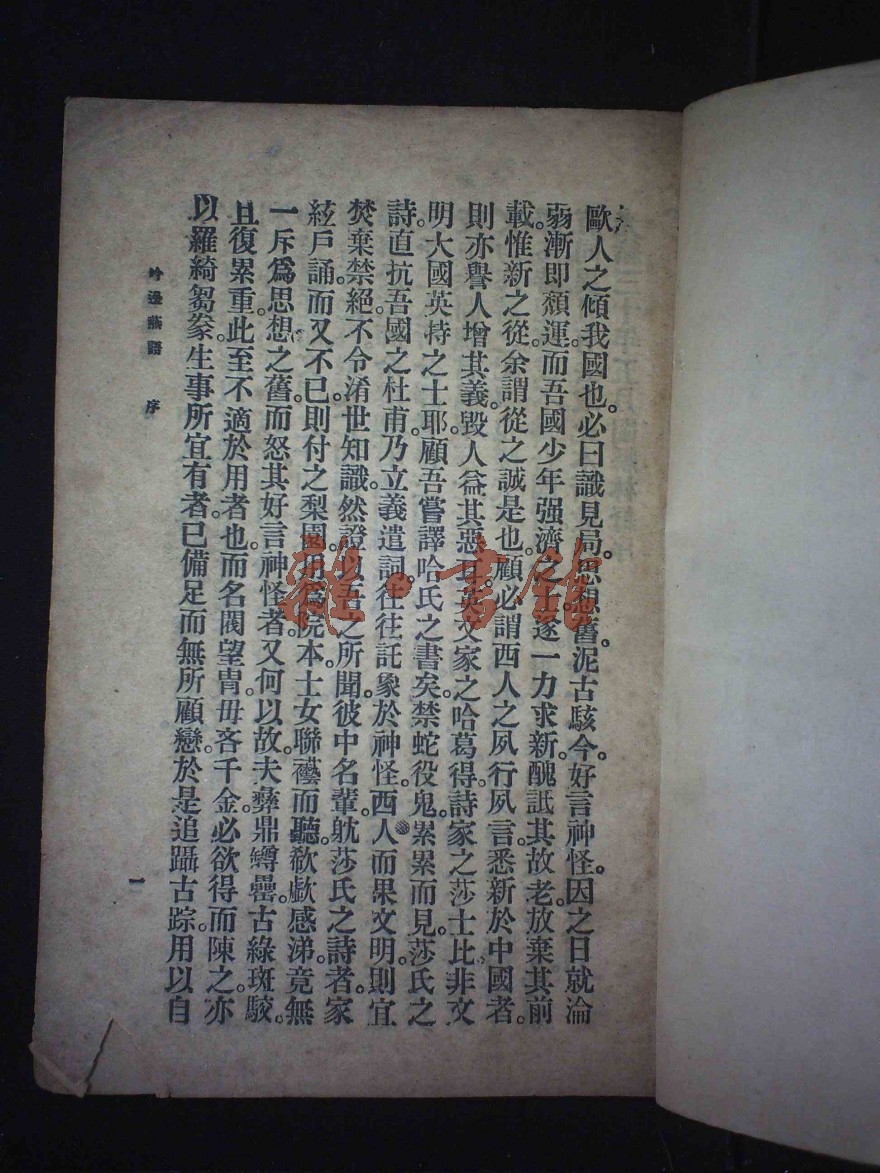 序
歐人之傾我國也。必曰識見局。思想舊。泥古駭今。好言神怪。因之日就淪
弱。漸即頹運。而吾國少年强濟之士。遂一力求新。醜詆其故老。放棄其前
載。惟新之從。余謂從之誠是也。顧必謂西人之夙行夙言。悉新於中國者。
則亦譽人增其義。毀人益其惡耳。英文家之哈葛得。詩家之莎士比。非文
明大國英特之士耶。顧吾嘗譯哈氏之書矣。禁蛇役鬼。累累而見。莎氏之
詩。直抗吾國之杜甫。乃立義遣詞。往往託象於神怪。西人而果文明。則宜
焚棄禁絕。不令淆世知識。然證以吾之所聞。彼中名輩。躭莎氏之詩者。家
絃戶誦。而又不已。則付之梨園。用爲院本。士女聯襼而聽。欷歔感涕。竟無
一斥爲思想之舊。而怒其好言神怪者。又何以故。夫彝鼎罇罍。古綠斑駮。
且復累重。此至不適於用者也。而名閥望胄。毋吝千金。必欲得而陳之。亦
以羅綺芻豢。生事所宜有者。已備足而無所顧戀。於是追躡古踪。用以自
吟邊燕語 序
一
雜·書館